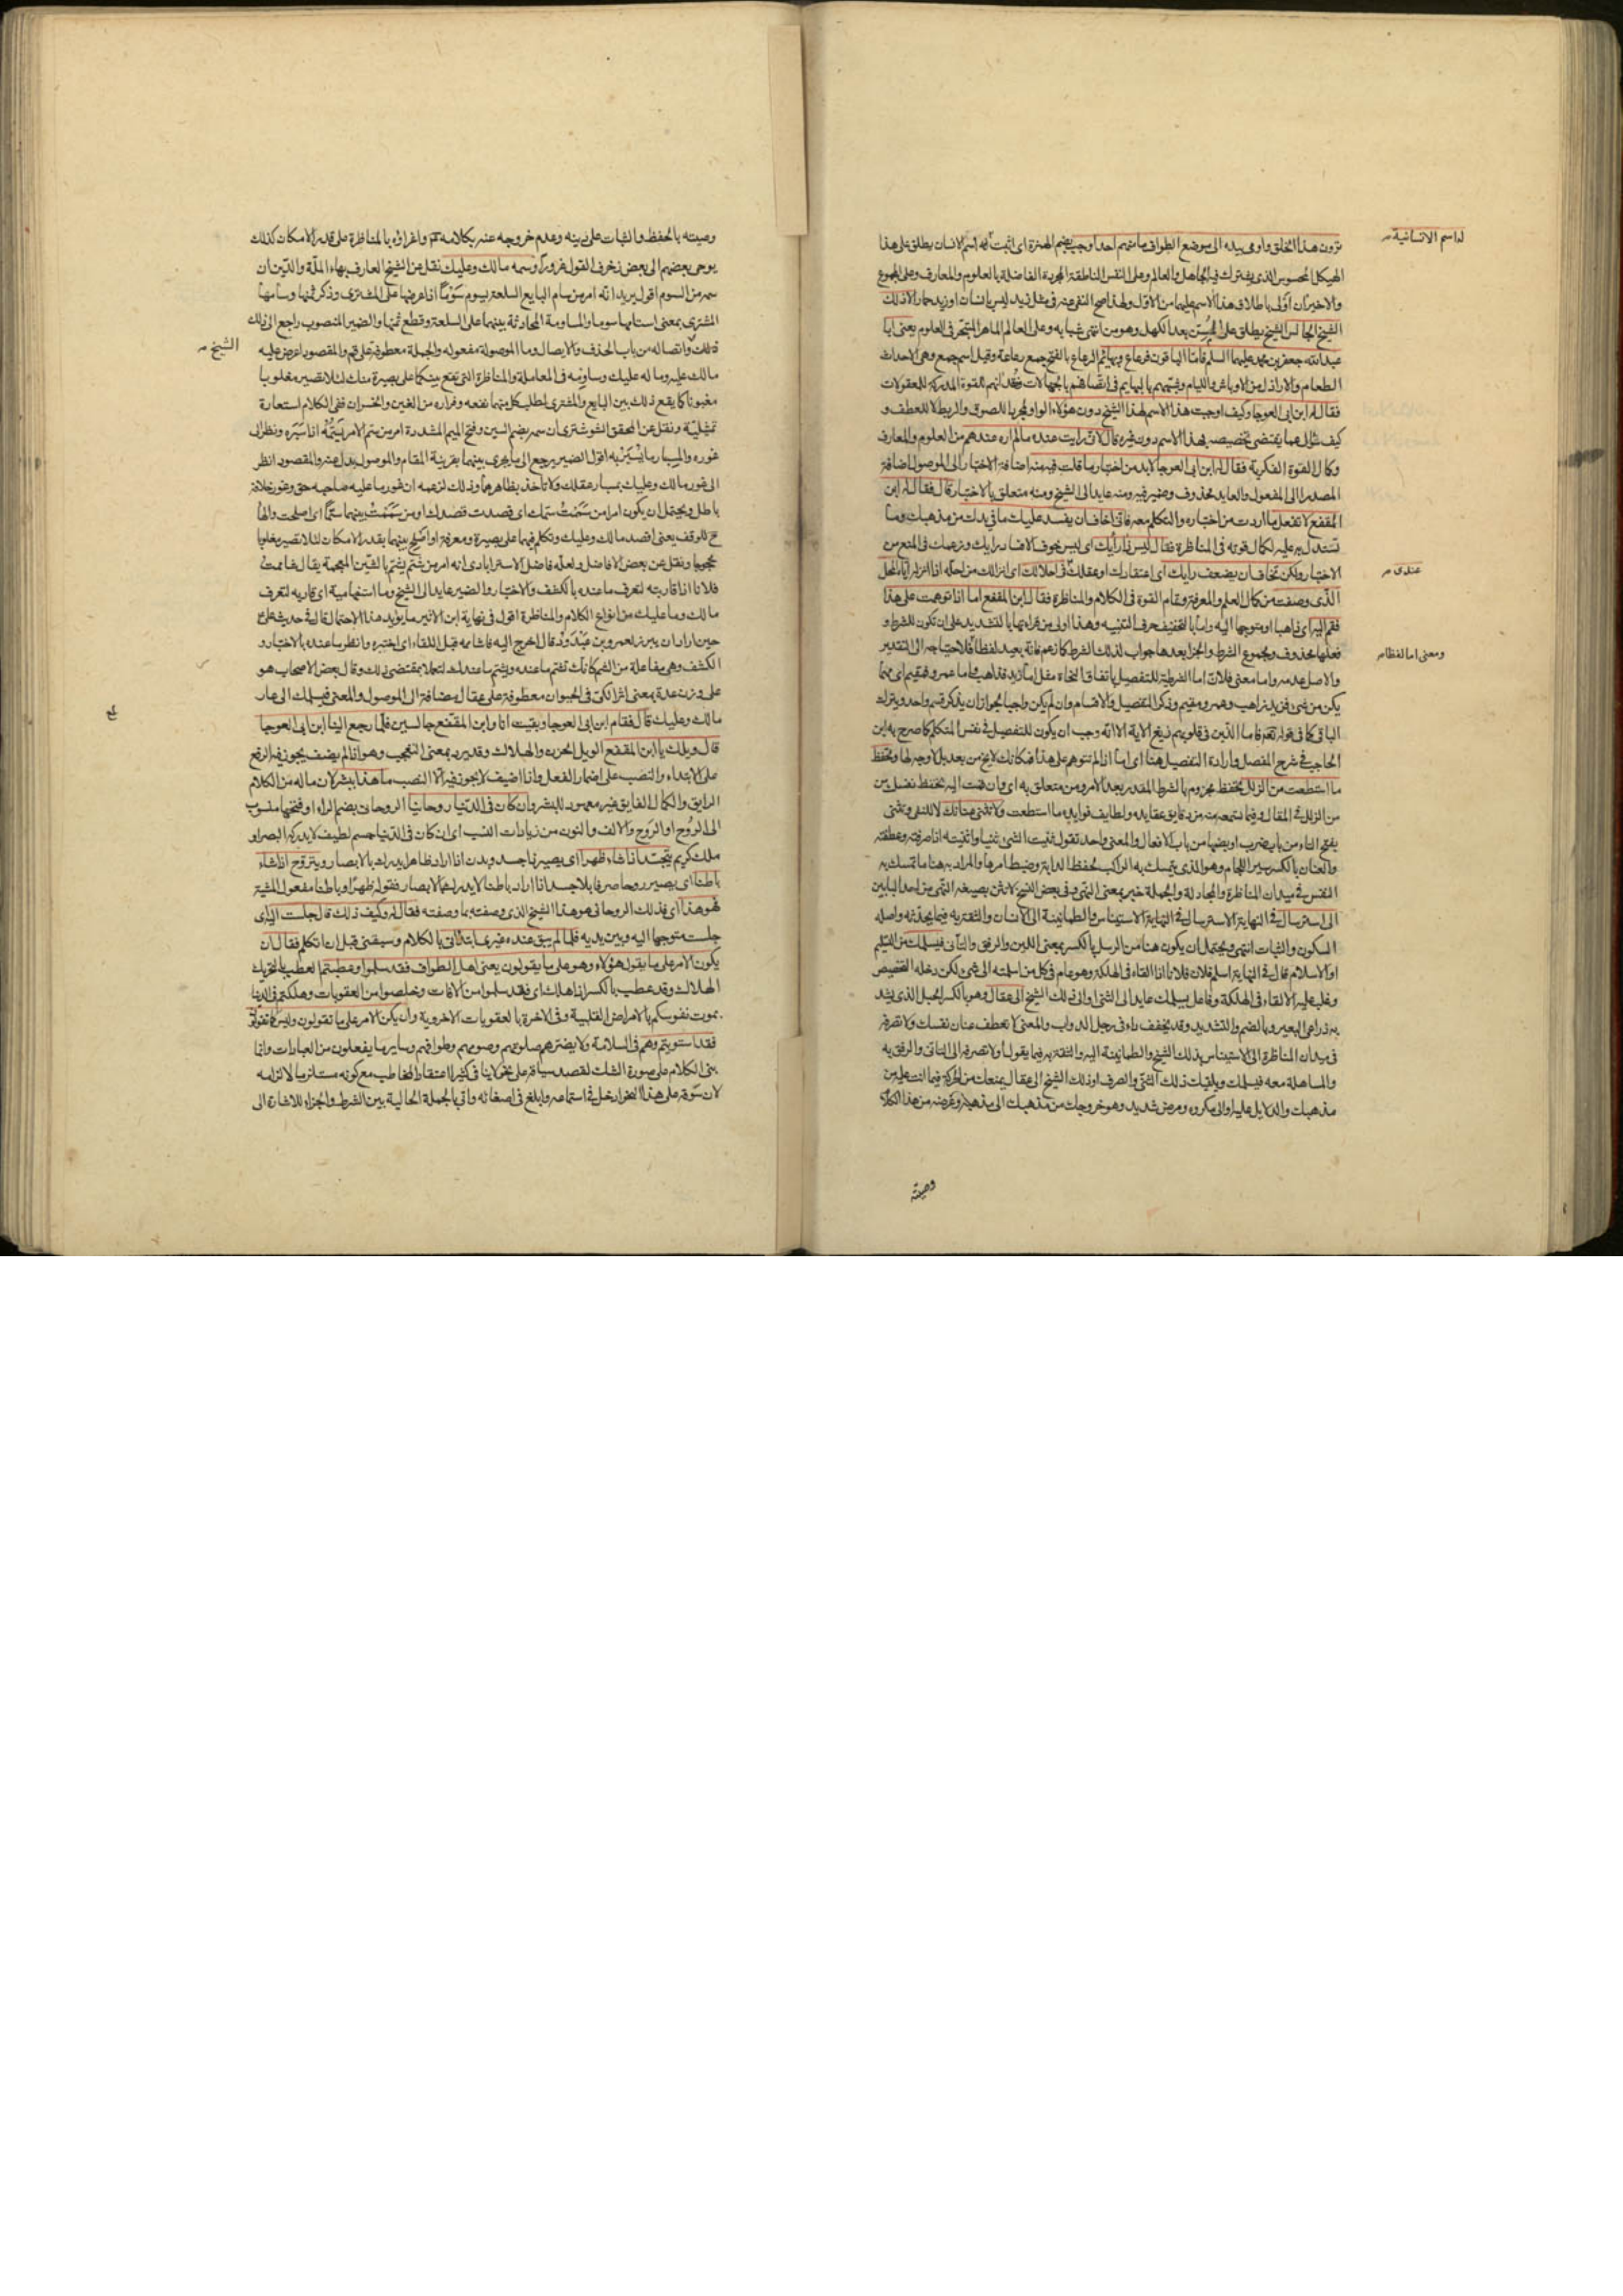 ترون هذا الخلق واومى بيده الى موضع الطواف ما منهم احد اوجب بضم الهمزة اى اثبت له اسم الانسان يطلق على هذا
له اسم الانسانية
الهيكل المحسوس الذى يشترك فيه الجاهل والعالم وعلى النفس الناطقة المجردة الفاضلة بالعلوم والمعارف وعلى المجموع
والاخيران اولى باطلاق هذا الاسم عليهما من الاول ولهذا صح النفى عنه فى مثل زيد ليس بانسان او زيد حمار الا ذلك
الشيخ الجالس الشيخ يطلق على المسن بعد الكهل وهو من انتهى شبابه وعلى العالم الماهر المتبحر فى العلوم يعنى ابا
عبد الله جعفر بن محمد عليهما السلم فاما الباقون فرعاع وبهائم الرعاع بالفتح جمع رعاعة وقيل اسم جمع وهى الاحداث
الطغام والاراذل من الاوباش واللئام وشبههم بالبهايم فى اتصافهم بالجهالات وفقدانهم للقوة المدركة للمعقولات
فقال له ابن ابى العوجا وكيف اوجبت هذا الاسم لهذا الشيخ دون هؤلاء الواو لمجرد اللصوق والربط لا للعطف و
كيف سؤال عما يقتضى تخصيصه بهذا الاسم دون غيره قال لانى رايت عنده ما لم اره عندهم من العلوم والمعارف
وكمال القوة الفكرية فقال له ابن ابى العوجا لا بد من اختبار ما قلت فيه منه اضافة الاختبار الى الموصول اضافة
المصدر الى المفعول والعايد محذوف وضمير فيه ومنه عايد الى الشيخ ومنه متعلق بالاختبار قال فقال له ابن
المقفع لا تفعل ما اردت من اختباره والتكلم معه فانى اخاف ان يفسد عليك ما فى يدك من مذهبك وما
تستدل به عليه لكمال قوته فى المناظرة فقال ليس ذا رأيك اى ليس خوف الافساد رايك وزعمك فى المنع من
الاختبار ولكن تخاف ان يضعف رايك اى اعتقادك او عقلك فى احلالك اى انزالك من احله اذا انزله اياه المحل
عندى
الذى وصفت من كمال العلم والمعرفة ومقام القوة فى الكلام والمناظرة فقال ابن المقفع اما اذا توهمت على هذا
فقم اليه اى ذاهبا او متوجها اليه واما بالتخفيف حرف التنبيه وهذا اولى من قراءتها بالتشديد على ان تكون للشرط و
فعلها محذوف ومجموع الشرط والجزا بعدها جواب لذلك الشرط كما زعم فانه بعيد لفظا فلاحتياجه الى التقدير
ومعنى اما لفظا
والاصل عدمه واما معنى فلان اما الشرطية للتفصيل باتفاق النحاة مثل اما زيد فذاهب واما عمرو فمقيم اى مهما
يكن من شئ فزيد ذاهب وعمرو مقيم وذكر التفصيل والاقسام وان لم يكن واجبا لجواز ان يذكر قسم واحد ويترك
الباقى كما فى قوله تعالى فاما الذين فى قلوبهم زيغ الاية الا انه وجب ان يكون للتفصيل فى نفس المتكلم كما صرح به ابن
الحاجب فى شرح المفصل وارادة التفصيل هنا اى اما اذا لم تتوهم على هذا فكانك لا يخ من بعد بل لا وجه لها وتحفظ
ما استطعت من الزلل تحفظ مجزوم بالشرط المقدر بعد الامر ومن متعلق به اى وان قمت اليه تحفظ نفسك من
من الزلل فى المقال وفيما تسمعه من دقايق عقايده ولطايف فوايده ما استطعت ولا تثنى عنانك لا للنفى وتثنى
بفتح التاء من باب ضرب او بضمها من باب الافعال والمعنى واحد تقول ثنيت الشئ ثنيا واثنيته اذا صرفته وعطفته
والعنان بالكسر سير اللجام وهو الذى يتمسك به الراكب لحفظ الدابة وضبط امرها والمراد به هنا ما تمسك به
النفس فى ميدان المناظرة والمجادلة والجملة خبر بمعنى النهى وفى بعض النسخ لا تثن بصيغة النهى من احد البابين
الى استرسال فى النهاية الاسترسال فى النهاية الاستيناس والطمانينة الى الانسان والثقة به فيما يحدثه واصله
السكون والثبات انتهى ويحتمل ان يكون هنا من الرسل بالكسر بمعنى اللين والرفق والتأنى فيسلمك من التسليم
او الاسلام قال فى النهاية اسلم فلان فلانا اذا القاه فى الهلكة وهو عام فى كل من اسلمته الى شئ لكن دخله التخصيص
وغلب عليه الالقاء فى الهلكة وفاعل يسلمك عايد الى الثنى او الى ذلك الشيخ الى عقال وهو بالكسر الحبل الذى يشد
به ذراعى البعير وبالضم والتشديد وقد يخفف داء فى رجل الدواب والمعنى لا تعطف عنان نفسك ولا تصرفه
فى ميدان المناظرة الى الاستيناس بذلك الشيخ والطمانينة اليه والثقة به فيما يقول او لا تصرفه الى التانى والرفق به
والمساهلة معه فيسلمك ويلقيك ذلك الثنى والصرف او ذلك الشيخ الى عقال يمنعك من الحركة فيما انت عليه من
مذهبك والدلايل عليه او الى مكروه ومرض شديد وهو خروجك من مذهبك الى مذهبه وغرضه من هذا الكلام
وصيته
وصيته بالحفظ والثبات على دينه وعدم خروجه عنه بكلامه واغراؤه بالمناظرة على قدر الامكان كذلك
يوحى بعضهم الى بعض زخرف القول غرورا وسمه مالك وعليك نقل عن الشيخ العارف بهاء الملة والدين ان
سمه من السوم اقول يريد انه امر من سام البايع السلعة يسوم سوما اذا عرضها على المشترى وذكر ثمنها وسامها
المشترى بمعنى استامها سوما والمساومة المحادثة بينهما على السلعة وقطع ثمنها والضمير المنصوب راجع الى ذلك
الشيخ
ذلك واتصاله من باب الحذف والايصال وما الموصولة مفعوله والجملة معطوفة على قم والمقصود اعرض عليه
مالك عليه وما له عليك وساومه فى المعاملة والمناظرة التى تقع بينكما على بصيرة منك لئلا تصير مغلوبا
مغبونا كما يقع ذلك بين البايع والمشترى لطلب كل منهما نفعه وفراره من الغبن والخسران ففى الكلام استعارة
تمثيلية ونقل عن المحقق الشوشترى ان سمه بضم السين وفتح الميم المشددة امر من سم الامر يسمه اذا سبره ونظر الى
غوره والمسبار ما يسبر به اقول الضمير يرجع الى ما يجرى بينهما بقرينة المقام والموصول بدل عنه والمقصود انظر
الى غور مالك وعليك بمسبار عقلك ولا تأخذ بظاهرهما وذلك لزعمه ان غور ما عليه صاحبه حق وغور خلافه
باطل ويحتمل ان يكون امرا من سممت سمك اى قصدت قصدك او من سممت بينهما سما اى اصلحت والهاء
ح للوقف يعنى اقصد مالك وعليك وتكلم فيهما على بصيرة ومعرفة او اصلح بينهما بقدر الامكان لئلا تصير مغلوبا
محجوبا ونقل عن بعض الافاضل ولعله فاضل الاسترابادى انه امر من شم يشم بالشين المعجمة يقال شاممت
فلانا اذا قاربته لتعرف ما عنده بالكشف والاختبار والضمير عايد الى الشيخ وما استفهامية اى قاربه لتعرف
مالك وما عليك من انواع الكلام والمناظرة اقول فى نهاية ابن الاثير ما يؤيد هذا الاحتمال قال فى حديث على
حين اراد ان يبرز لعمرو بن عبد ود قال اخرج اليه فاشامه قبل اللقاء اى اختبره وانظر ما عنده بالاختبار و
الكشف وهى مفاعلة من الشم كانك تشم ما عنده ويشم ما عندك لتعملا بمقتضى ذلك وقال بعض الاصحاب هو
على وزن عدة بمعنى اثر الكى فى الحيوان معطوفة على عقال مضافة الى الموصول والمعنى فيسلمك الى عار
مالك وعليك قال فقام ابن ابى العوجا وبقيت انا وابن المقفع جالسين فلما رجع الينا ابن ابى العوجا
قال ويلك يا ابن المقفع الويل الحزن والهلاك وقد يرد بمعنى التعجب وهو اذا لم يضف يجوز فيه الرفع
على الابتداء والنصب على اضمار الفعل واذا اضيف لا يجوز فيه الا النصب ما هذا ببشر لان ماله من الكلام
الرايق والكمال الفايق غير معهود للبشر وان كان فى الدنيا روحانيا الروحانى بضم الراء او فتحها منسوب
الى الروح او الروح والالف والنون من زيادات النسب اى ان كان فى الدنيا جسم لطيف لا يدركه البصر او
ملك كريم يتجسد اذا شاء ظهرا اى يصير ذا جسد وبدن اذا اراد ظاهرا يدرك بالابصار ويتروح اذا شاء
باطنا اى يصير روحا صرفا بلا جسد اذا اراد باطنا لا يدركه الابصار فقوله ظهرا وباطنا مفعول المشية
فهو هذا اى فذلك الروحانى هو هذا الشيخ الذى وصفته بما وصفته فقال له وكيف ذلك قال جلست اليه اى
جلست متوجها اليه وبين يديه فلما لم يبق عنده غيرى ابتدأنى بالكلام وسبقنى قبل ان اتكلم فقال ان
يكون الامر على ما يقول هؤلاء وهو على ما يقولون يعنى اهل الطواف فقد سلموا وعطبتم العطب بالتحريك
الهلاك وقد عطب بالكسر اذا هلك اى فقد سلموا من الافات وخلصوا من العقوبات وهلكتم فى الدنيا
بموت نفوسكم بالامراض القلبية وفى الاخرة بالعقوبات الاخروية وان يكن الامر على ما تقولون وليس كما تقولون
فقد استويتم وهم فى السلامة ولا يضرهم صلوتهم وصومهم وطوافهم وساير ما يفعلون من العبادات وانما
بنى الكلام على صورة الشك لقصد سياقه على نحو لا ينافى كثيرا اعتقاد المخاطب مع كونه مستلزما لالزامه
لان سوقه على هذا النحو ادخل فى استماعه وابلغ فى اصغائه واتى بالجملة الحالية بين الشرط والجزاء للاشارة الى